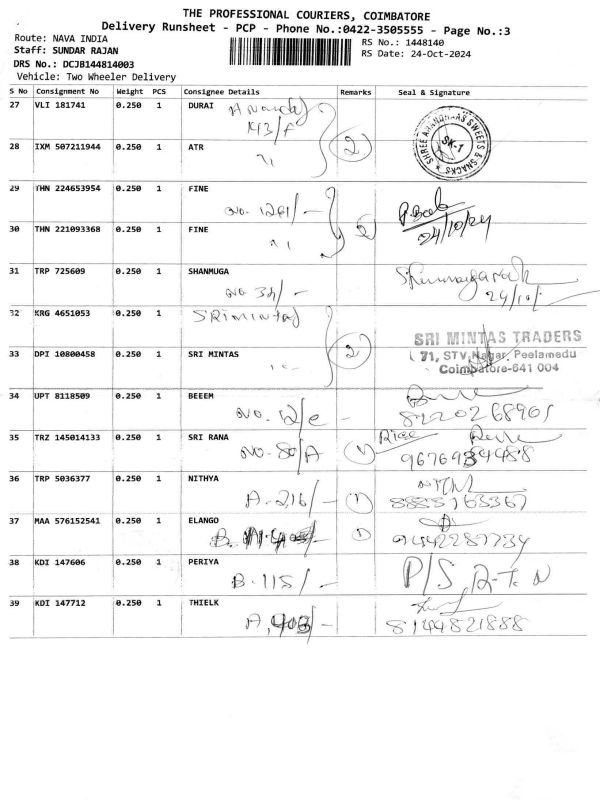 THE PROFESSIONAL COURIERS, COIMBATORE
Delivery Runsheet - PCP - Phone No.:0422-3505555 - Page No.:3
Route: NAVA INDIA
RS No.: 1448140
Staff: SUNDAR RAJAN
RS Date: 24-Oct-2024
DRS No.: DCJB144814003
Vehicle: Two Wheeler Delivery
S No Consignment No Weight PCS Consignee Details Remarks Seal & Signature
27 VLI 181741 0.250 1 DURAI
143/F
2
SHREE ANANDHAAS SWEETS & SNACKS
SK-1
28 IXM 507211944 0.250 1 ATR
29 THN 224653954 0.250 1 FINE
NO. 1261/-
2
24/10/24
30 THN 221093368 0.250 1 FINE
31 TRP 725609 0.250 1 SHANMUGA
NO 32/-
24/10/
32 KRG 4651053 0.250 1 SRIMINTAS
2
SRI MINTAS TRADERS
71, STV Nagar, Peelamedu
Coimbatore-641 004
33 DPI 10800458 0.250 1 SRI MINTAS
34 UPT 8118509 0.250 1 BEEEM
NO. 12/e -
8220268901
35 TRZ 145014133 0.250 1 SRI RANA
NO-80/A
1
9676934488
36 TRP 5036377 0.250 1 NITHYA
A-216/-
1
8883163367
37 MAA 576152541 0.250 1 ELANGO
1
9442287734
38 KDI 147606 0.250 1 PERIYA
B-115/-
P/S, R-T. N
39 KDI 147712 0.250 1 THIELK
A, 403/-
8144821888